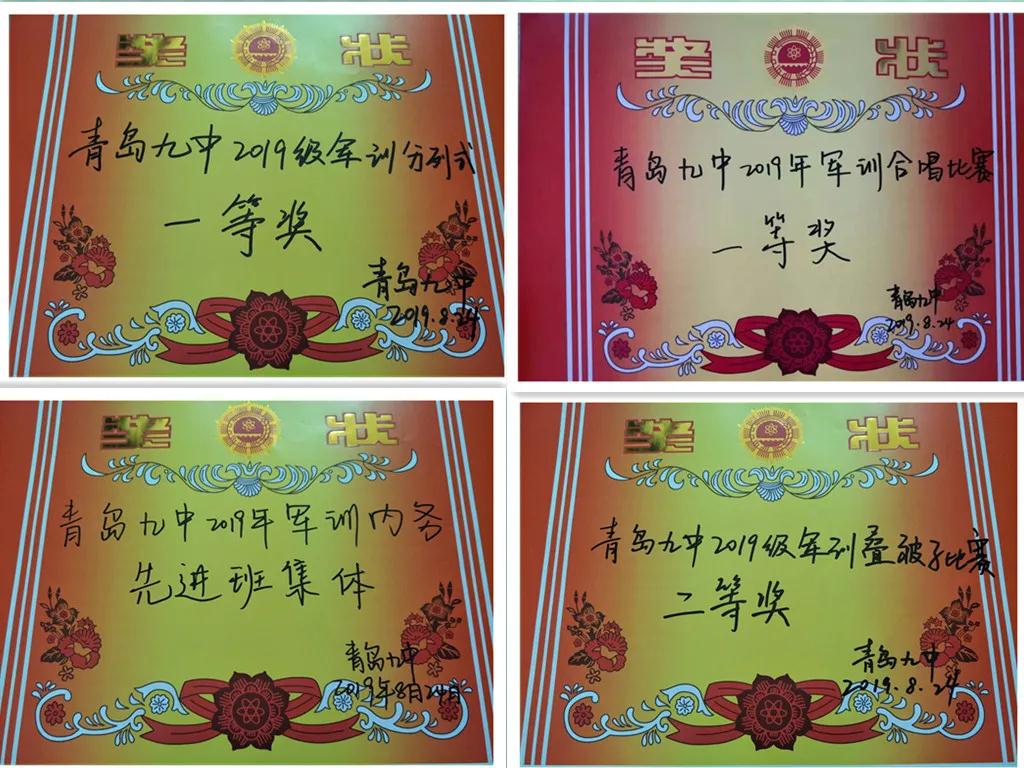 奖 状
青岛九中2019级军训分列式
一等奖
青岛九中
2019.8.24
奖 状
青岛九中2019年军训合唱比赛
一等奖
青岛九中
2019.8.24
奖 状
青岛九中2019年军训内务
先进班集体
青岛九中
2019年8月24日
奖 状
青岛九中2019级军训叠被子比赛
二等奖
青岛九中
2019.8.24